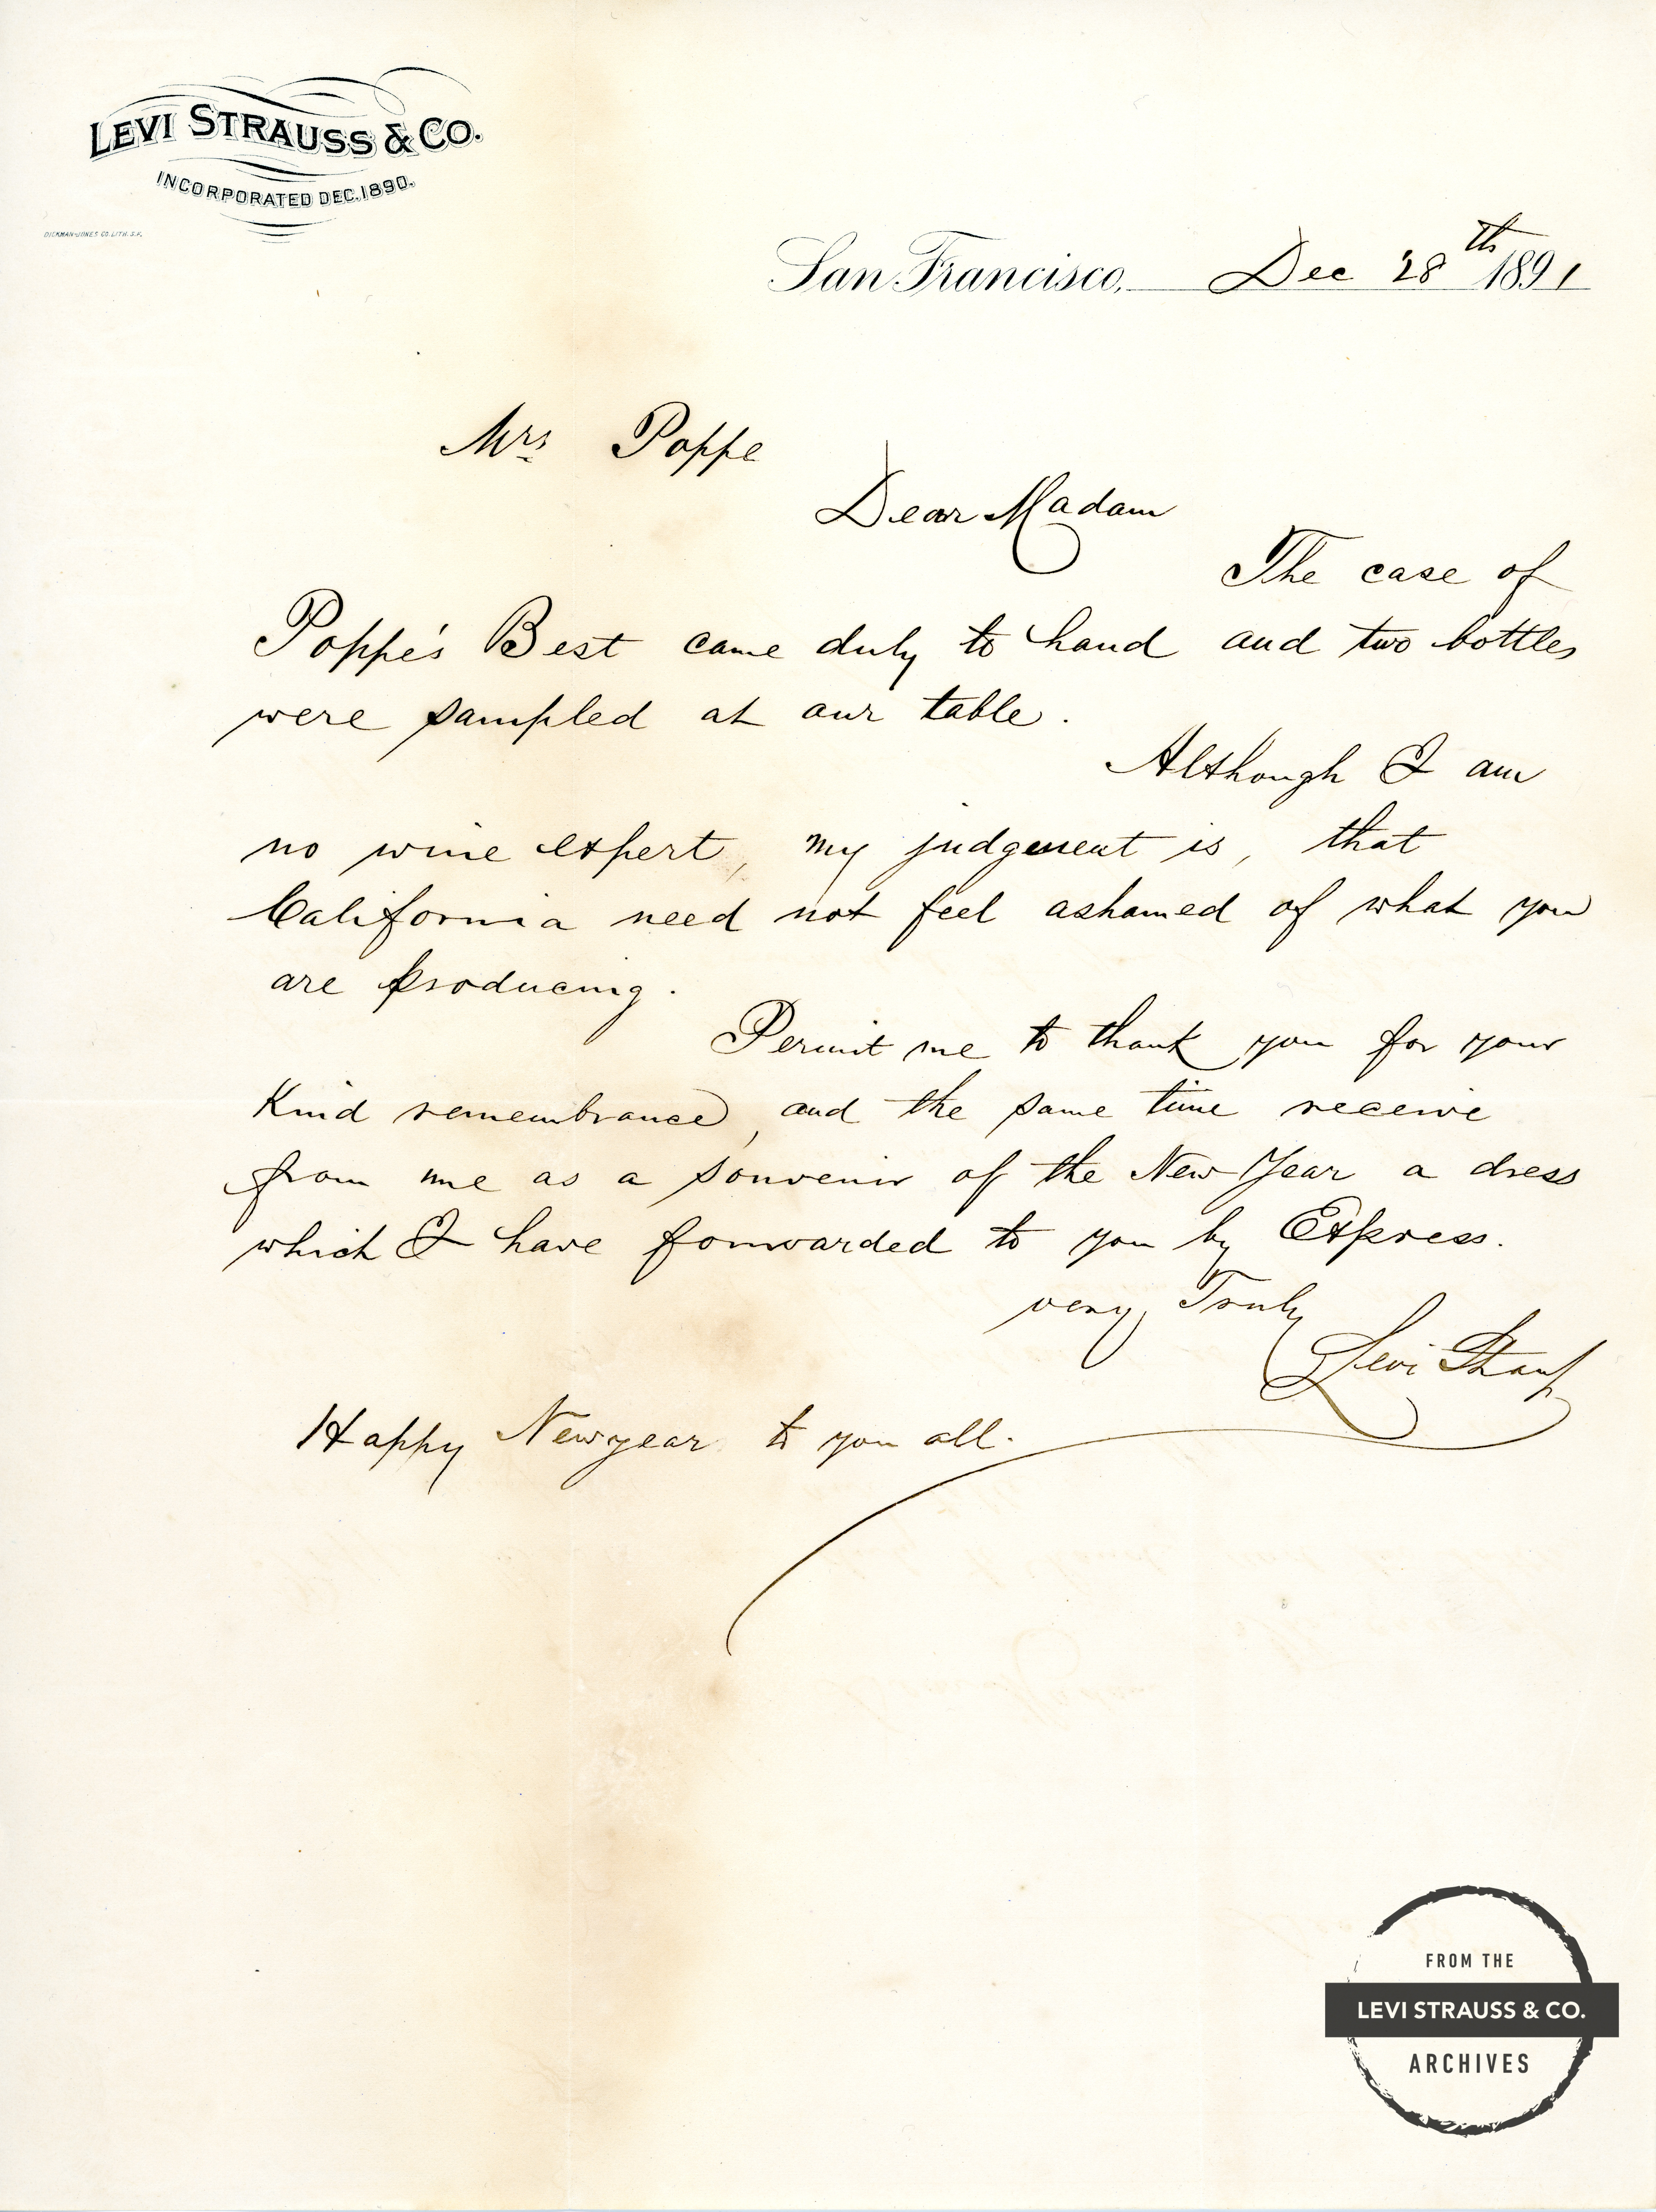 LEVI STRAUSS & CO.
INCORPORATED DEC. 1890.
DICKMAN-JONES CO. LITH. S.F.
San Francisco, Dec 28th 1891
Mrs Poppe
Dear Madam
The case of
Poppe's Best came duly to hand and two bottles
were sampled at our table.
Although I am
no wine expert, my judgement is, that
California need not feel ashamed of what you
are producing.
Permit me to thank you for your
Kind remembrance, and the same time receive
from me as a souvenir of the New Year a dress
which I have forwarded to you by Express.
very Truly
Levi Strauss
Happy Newyear to you all.
FROM THE
LEVI STRAUSS & CO.
ARCHIVES